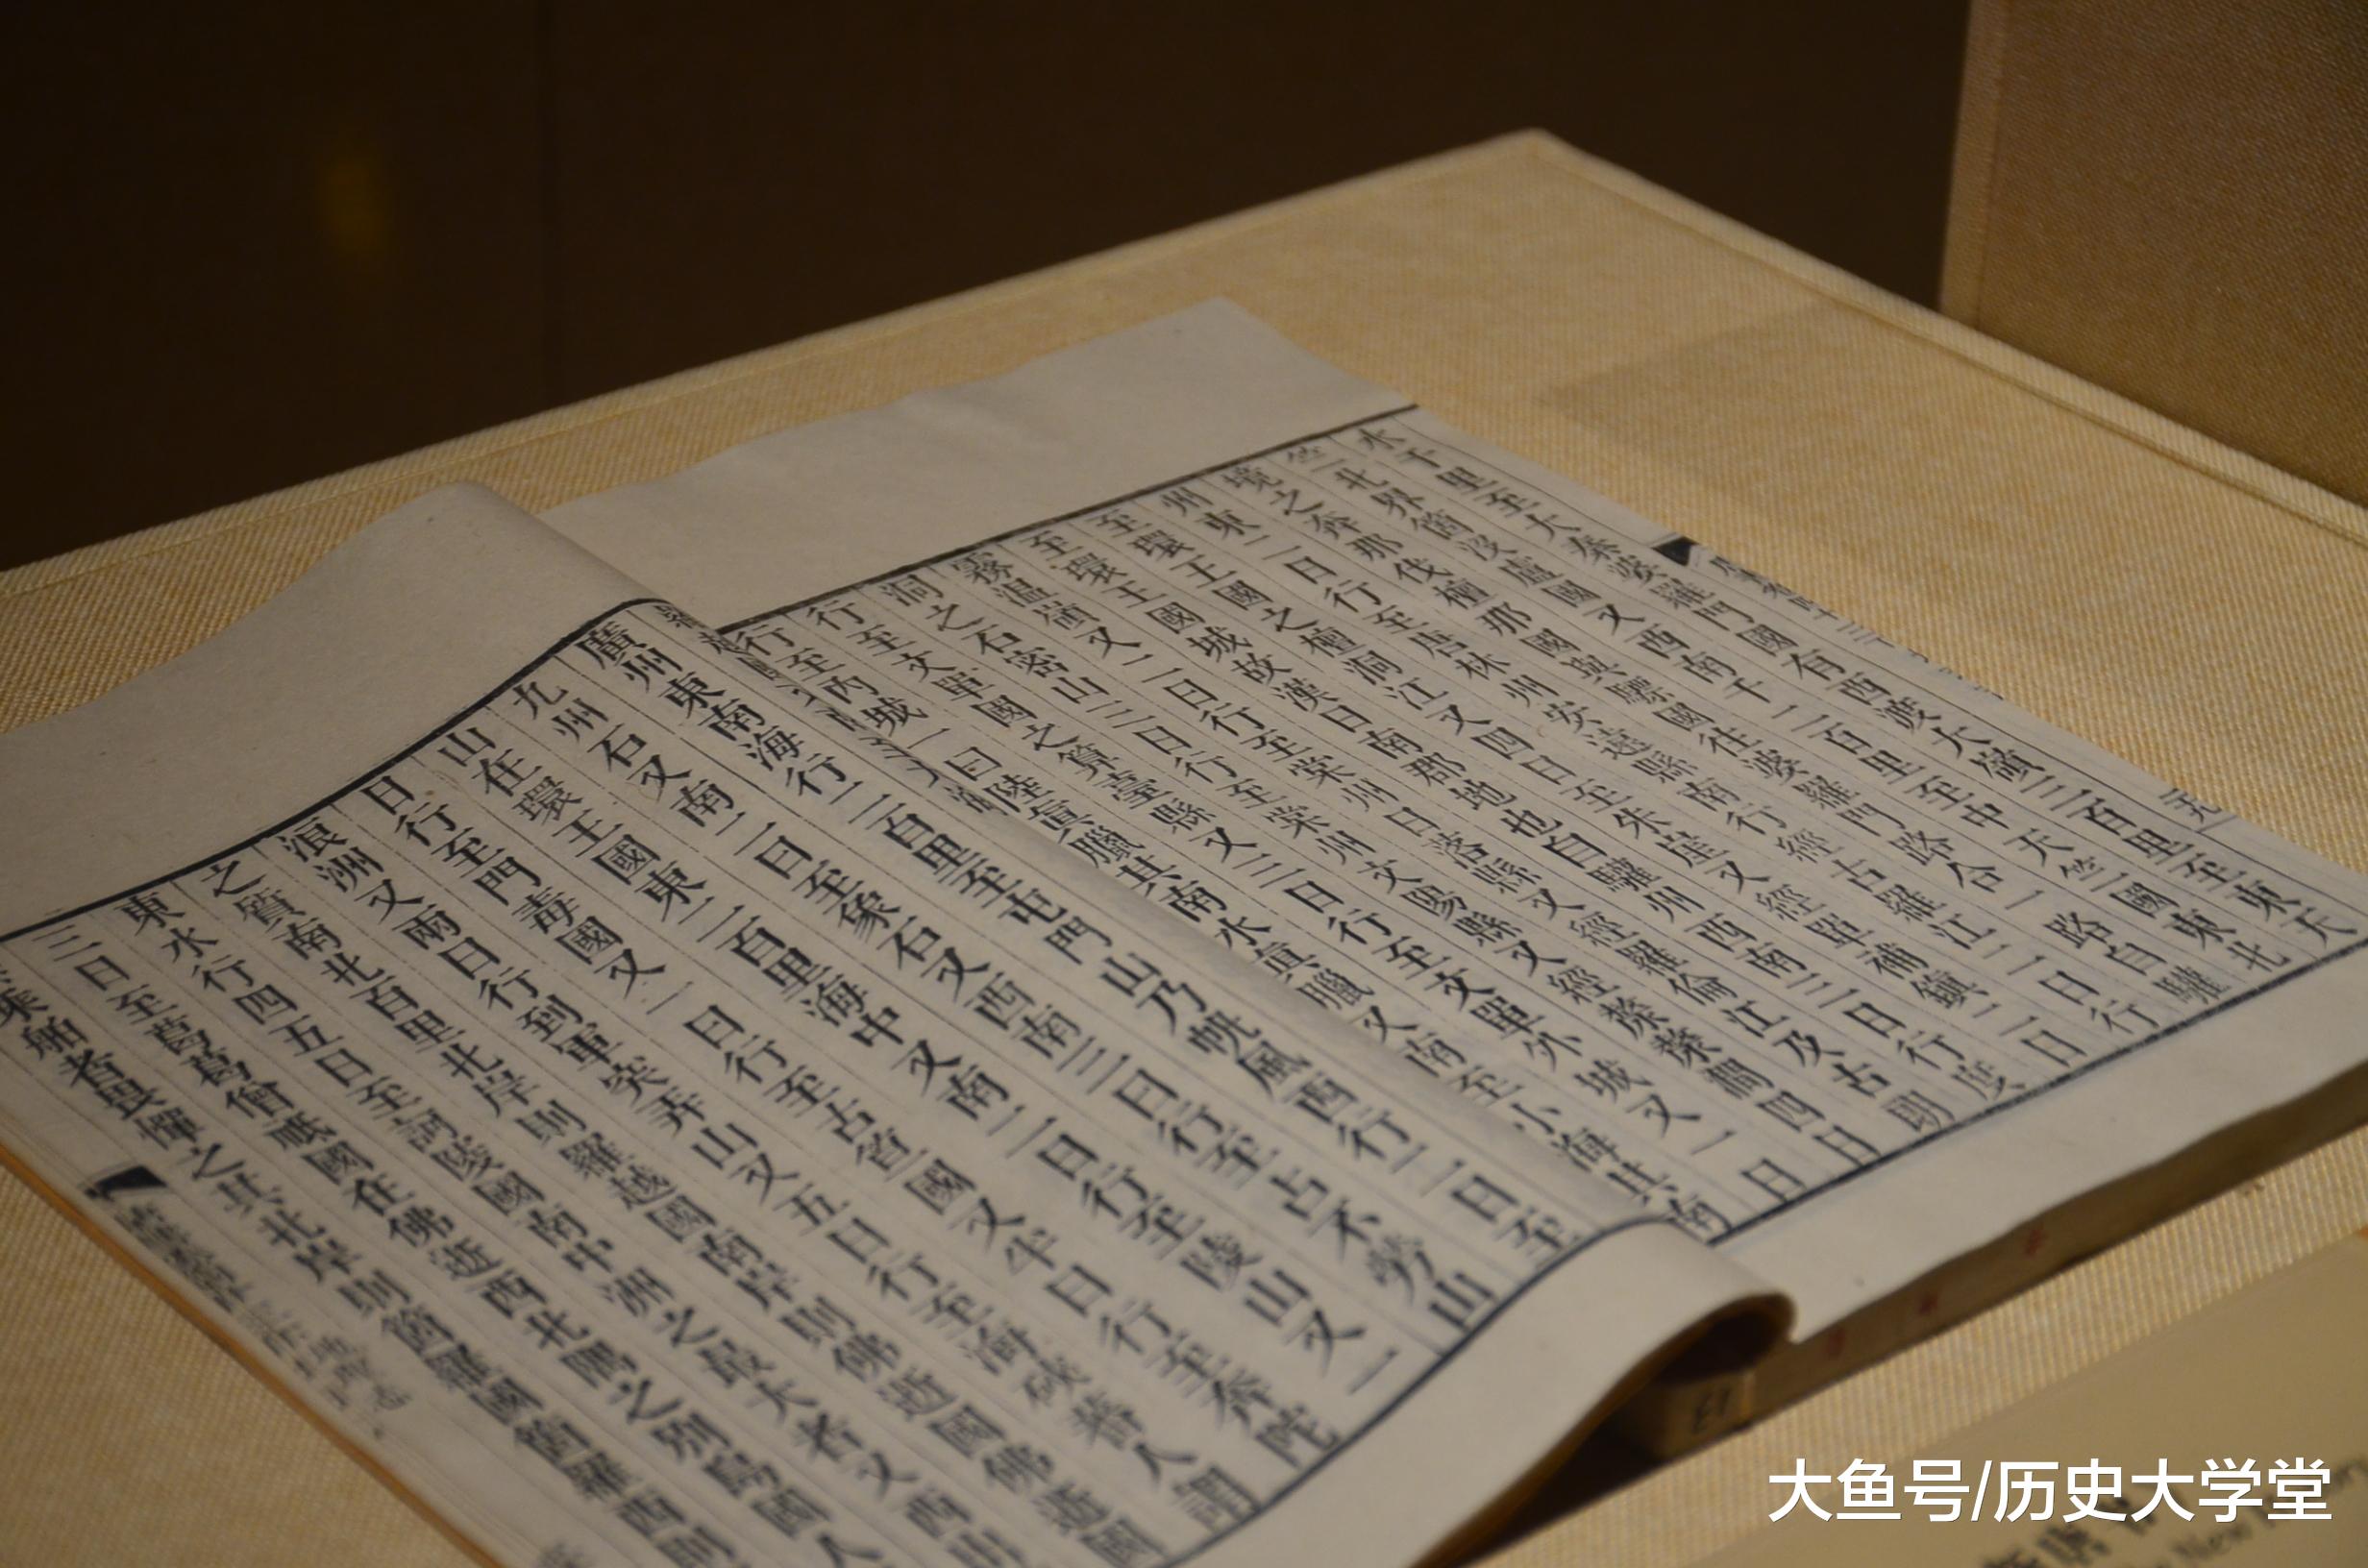 水千里至大秦婆羅門國有西渡大嶺三百里至東天
竺北界箇沒盧國又西南千二百里至中天竺國東北
境之奔那伐檀那國與驃國往婆羅門路合一路自驩
州東二日行至唐林州安遠縣南行經古羅江二日行
至環王國之檀洞江又四日至朱崖又經單補鎮二日
至環王國城故漢日南郡地也自驩州西南三日行度
霧温嶺又二日行至棠州日落縣又經羅倫江及古朗
洞之石密山三日行至棠州文陽縣又經漦漦澗四日
行至文單國之算臺縣又三日行至文單外城又一日
行至內城一曰陸真臘其南水真臘又南至小海其南
羅越
廣州東南海行二百里至屯門山乃帆風西行二日至
九州石又南二日至象石又西南三日行至占不勞山
山在環王國東二百里海中又南二日行至陵山又一
日行至門毒國又一日行至古笪國又半日行至奔陀
浪洲又兩日行到軍突弄山又五日行至海硤蕃人謂
之質南北百里北岸則羅越國南岸則佛逝國佛逝國
東水行四五日至訶陵國南中洲之最大者又西出
三日至葛葛僧祇國在佛逝西北隅之別島國人
乘舶者畏憚之其北岸則箇羅國箇羅西則
大鱼号/历史大学堂